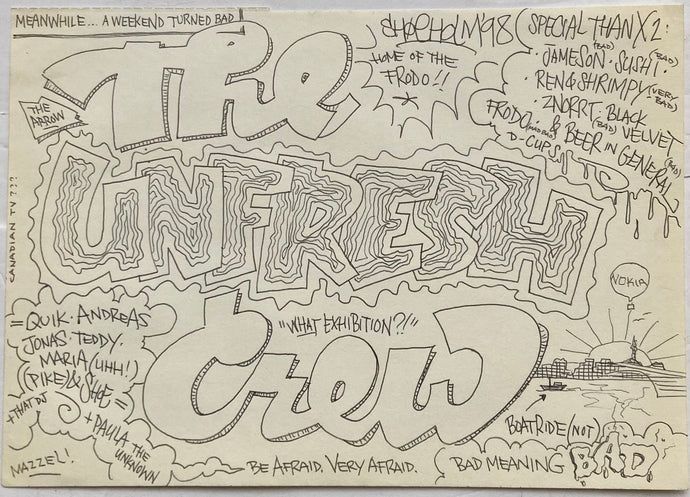 MEANWHILE... A WEEKEND TURNED BAD
The
UNFRESH
Crew
SHOEHOLM '98
HOME OF THE
FRODO!!
SPECIAL THANX 2:
· JAMESON (BAD) · SUSHI · (BAD)
REN & SHRIMPY (VERY BAD)
· ZNORRT · BLACK
FRODO · & (BAD) VELVET (BAD)
D-CUPS · BEER IN GENERAL
THE ARROW
CANADIAN TV???
= QUIK · ANDREAS
JONAS · TEDDY ·
MARIA (UHH!)
(PIKE) & SHOE =
+ THAT DJ
+ PAULA THE
UNKNOWN
MAZZEL!
"WHAT EXHIBITION?!"
BE AFRAID. VERY AFRAID.
NOKIA
BOATRIDE (NOT)
BAD MEANING BAD